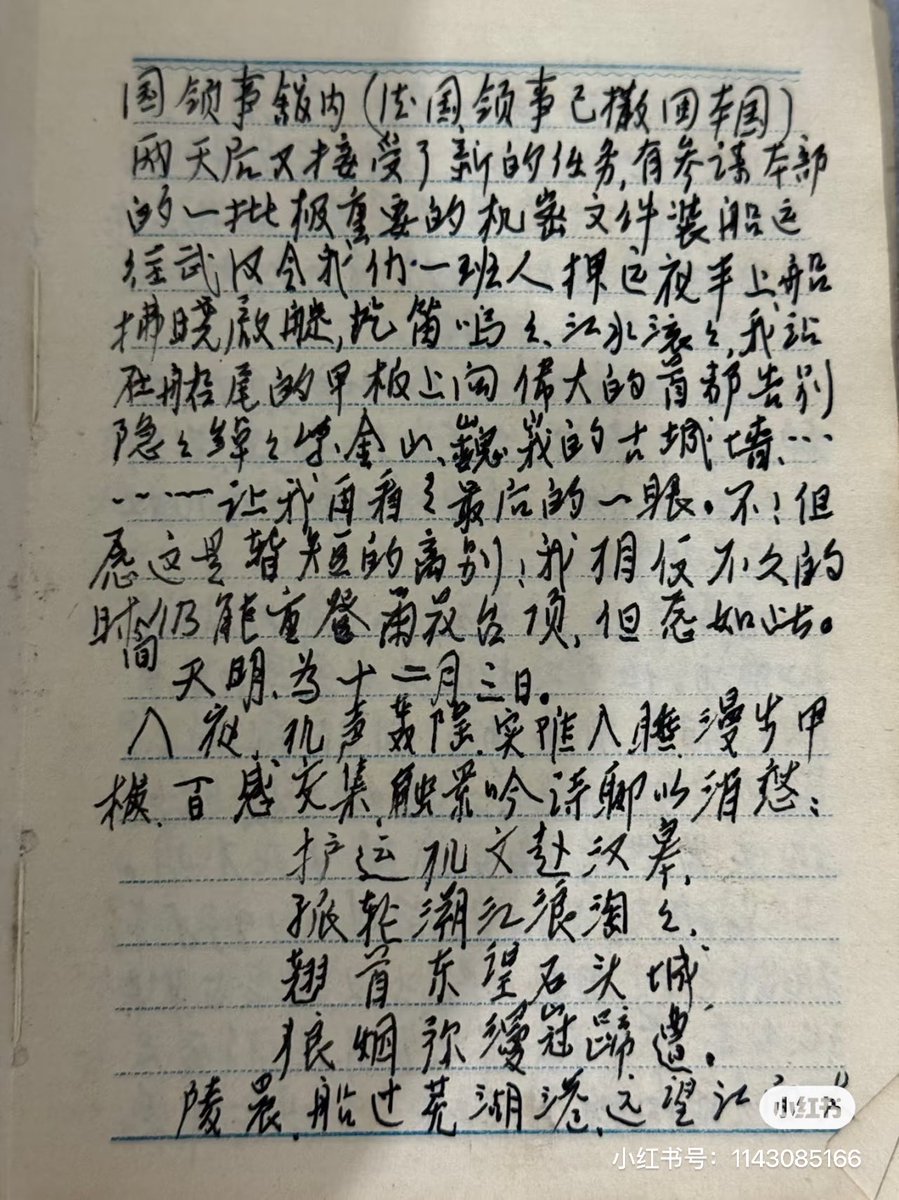 国领事馆内(法国领事已撤回本国)
两天后又接受了新的任务,有参谋本部
的一批极重要的机密文件装船运
往武汉令我们一班人押运夜半上船
拂晓启艇,汽笛呜々、江水滚々,我站
在船尾的甲板上向伟大的首都告别
隐々绰々紫金山、巍峨的古城墙……
……让我再看々最后的一眼。不!但
愿这是暂短的离别,我相信不久的
时间仍能重登雨花台顶,但愿如此。
天明、为十二月三日。
入夜,机声轰隆,实难入睡,漫步甲
板、百感交集,触景吟诗聊以消愁:
护运机文赴汉皋,
孤轮溯江浪淘々,
翘首东望石头城
狼烟弥漫冦蹄遭。
陵晨,船过芜湖港,远望江
小红书
小红书号:1143085166